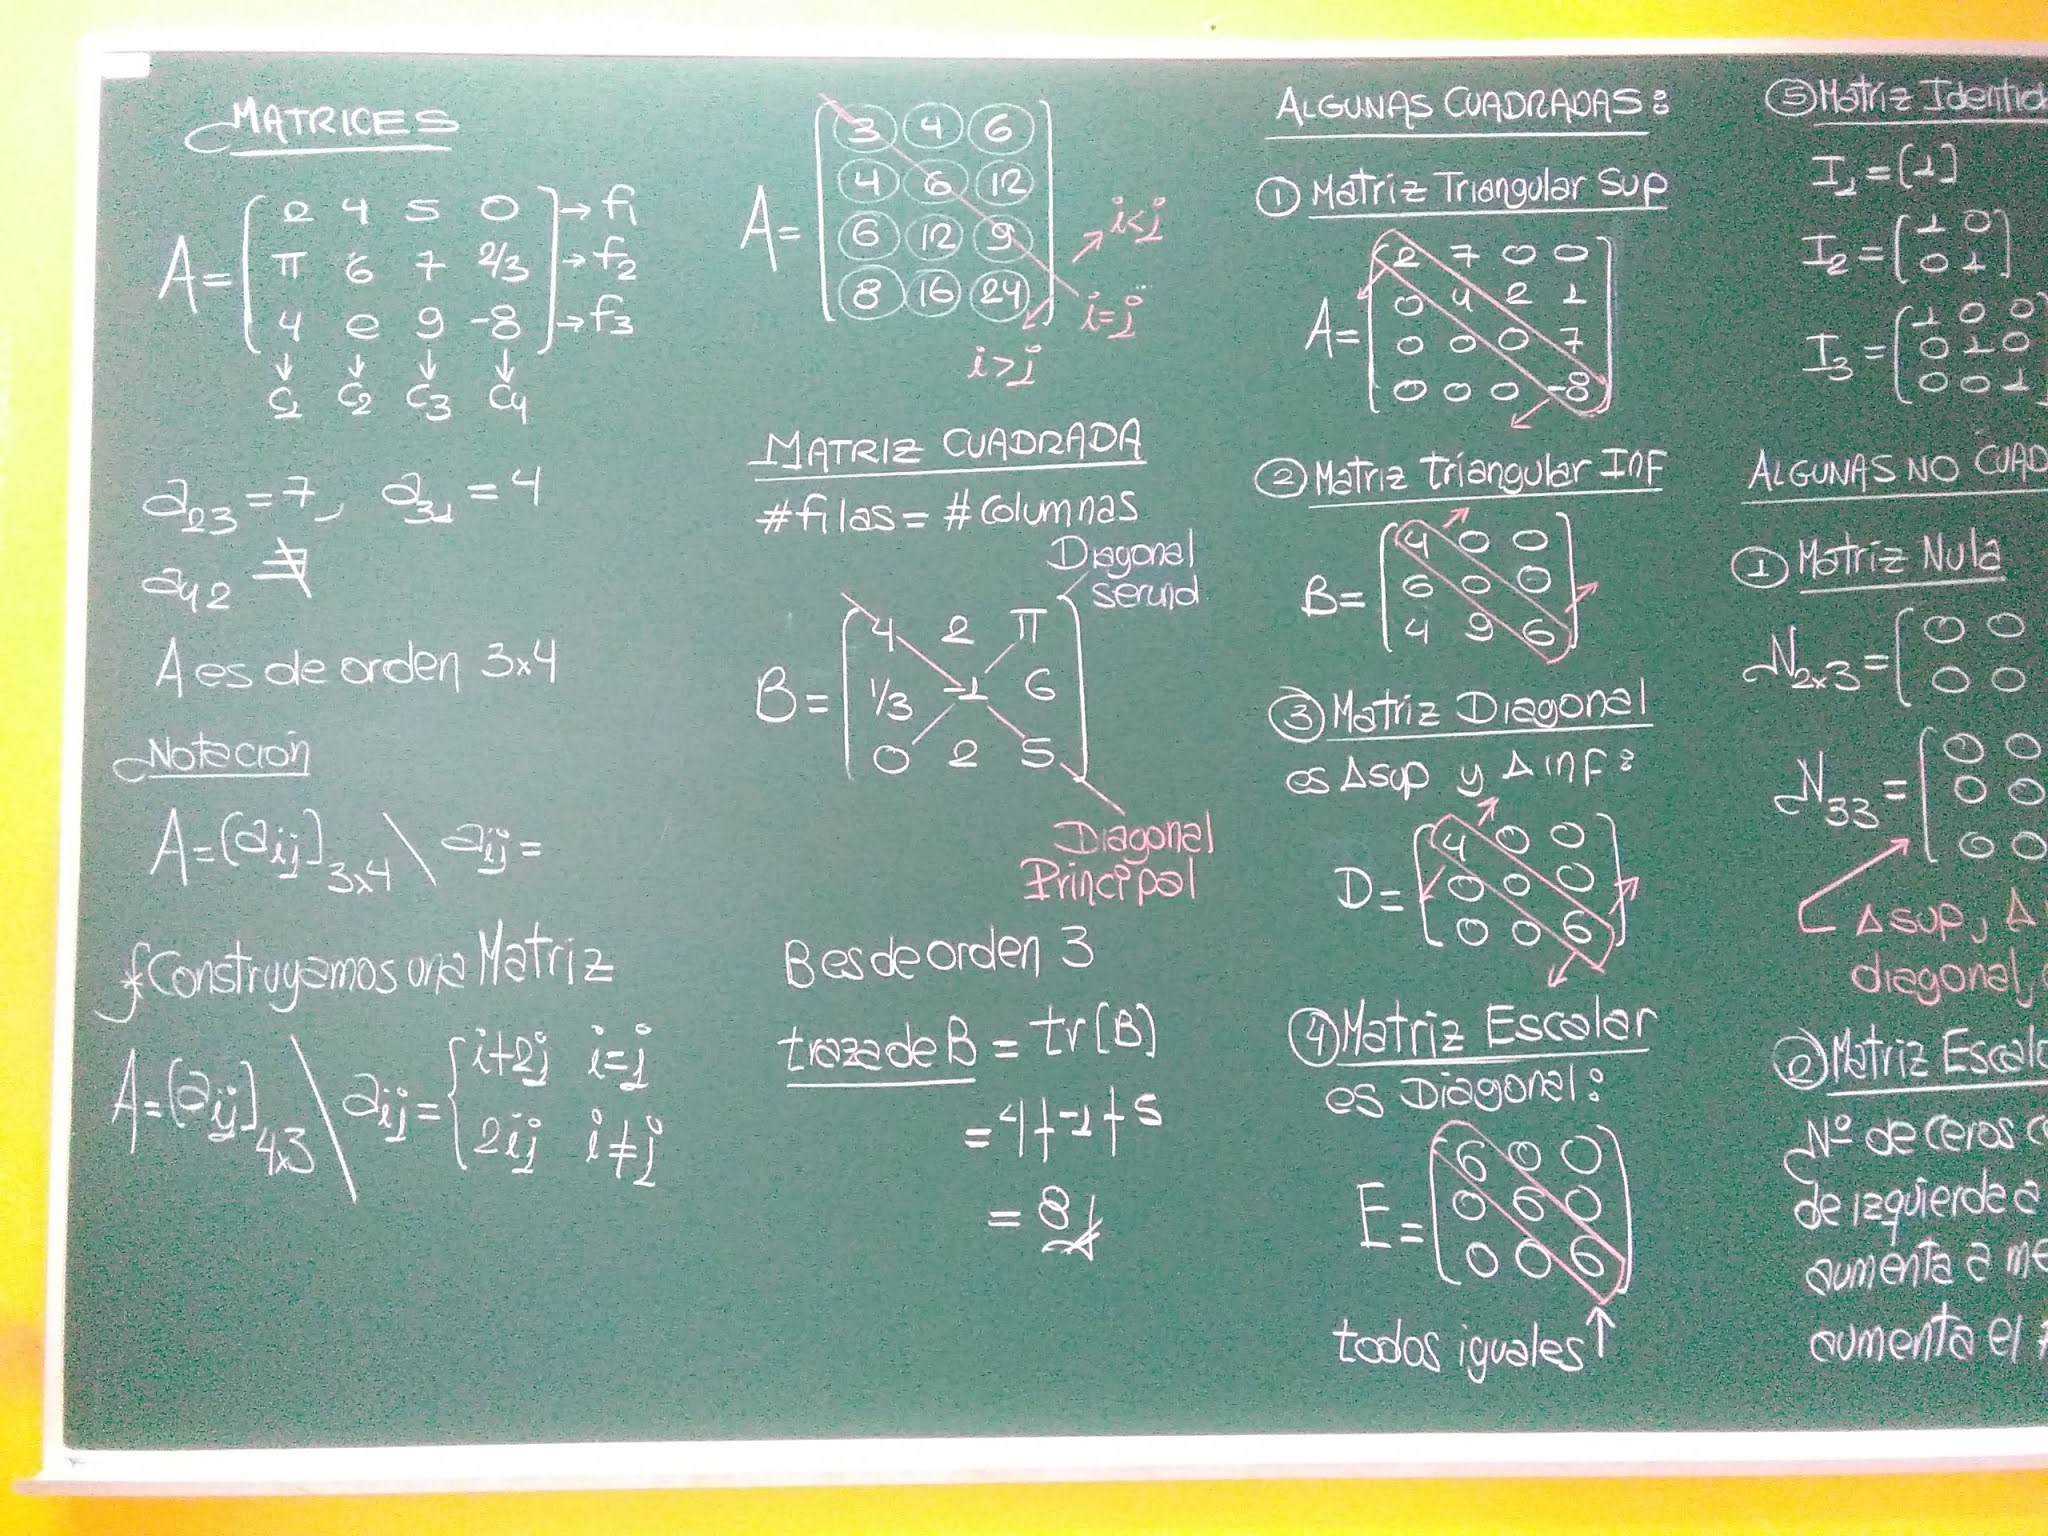 MATRICES
A = [ 2 4 5 0 ] → f1
[ π 6 7 2/3 ] → f2
[ 4 e 9 -8 ] → f3
↓ ↓ ↓ ↓
C1 C2 C3 C4
a23 = 7, a31 = 4
a42 ∄
A es de orden 3x4
Notación
A = [aij]3x4 \ aij =
*Construyamos una Matriz
A = [aij]4x3 \ aij = { i+2j i=j
2ij i≠j
A = [ 3 4 6 ]
[ 4 6 12 ]
[ 6 12 9 ]
[ 8 16 24 ]
i<j
i=j
i>j
MATRIZ CUADRADA
#filas = #columnas
Diagonal
secund.
B = [ 4 2 π ]
[ 1/3 -1 6 ]
[ 0 2 5 ]
Diagonal
Principal
B es de orden 3
traza de B = tr[B]
= 4+-1+5
= 8
ALGUNAS CUADRADAS:
① Matriz Triangular Sup
A = [ 2 7 0 0 ]
[ 0 4 2 1 ]
[ 0 0 0 7 ]
[ 0 0 0 -8 ]
② Matriz Triangular Inf
B = [ 4 0 0 ]
[ 6 0 0 ]
[ 4 9 6 ]
③ Matriz Diagonal
es Δsup y Δ inf:
D = [ 4 0 0 ]
[ 0 0 0 ]
[ 0 0 6 ]
④ Matriz Escalar
es Diagonal:
E = [ 6 0 0 ]
[ 0 6 0 ]
[ 0 0 6 ]
todos iguales ↑
⑤ Matriz Identid
I1 = [1]
I2 = [ 1 0 ]
[ 0 1 ]
I3 = [ 1 0 0
[ 0 1 0
[ 0 0 1
ALGUNAS NO CUAD
① Matriz Nula
N2x3 = [ 0 0
[ 0 0
N33 = [ 0 0
[ 0 0
[ 0 0
Δ sup, Δ
diagonal,
② Matriz Escalo
Nº de ceros
de izquierda a
aumenta a me
aumenta el